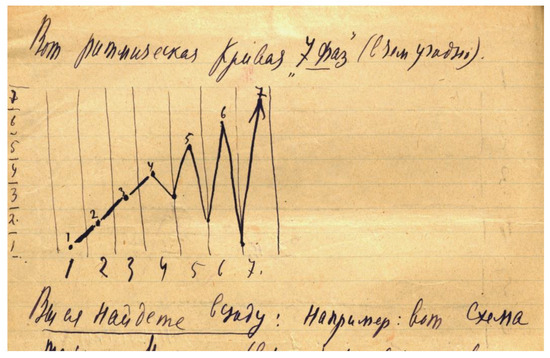 Вот ритмическая кривая „7 фаз" (в чем угодно).
7
6
5
4
3
2
1
1 2 3 4 5 6 7
1 2 3 4 5 6 7.
Вы ея найдете всюду: например: вот схема